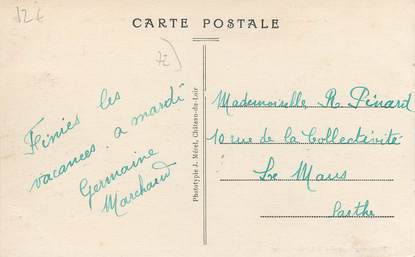 12€
CARTE POSTALE
72)
Finies les
vacances. a mardi
Germaine
Marchand
Phototypie J. Méret, Château-du-Loir
Mademoiselle R. Pinard
10 rue de la Collectivité
Le Mans
Sarthe